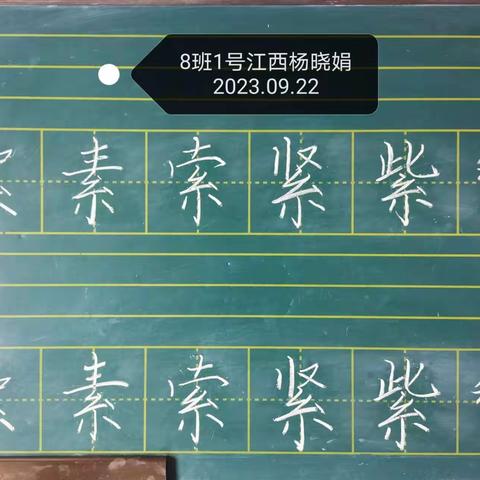 8班1号江西杨晓娟
2023.09.22
素 索 紧 紫
素 索 紧 紫